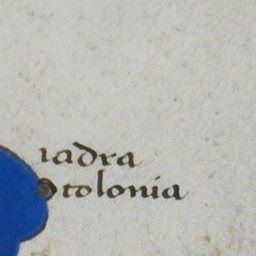 iadra
colonia